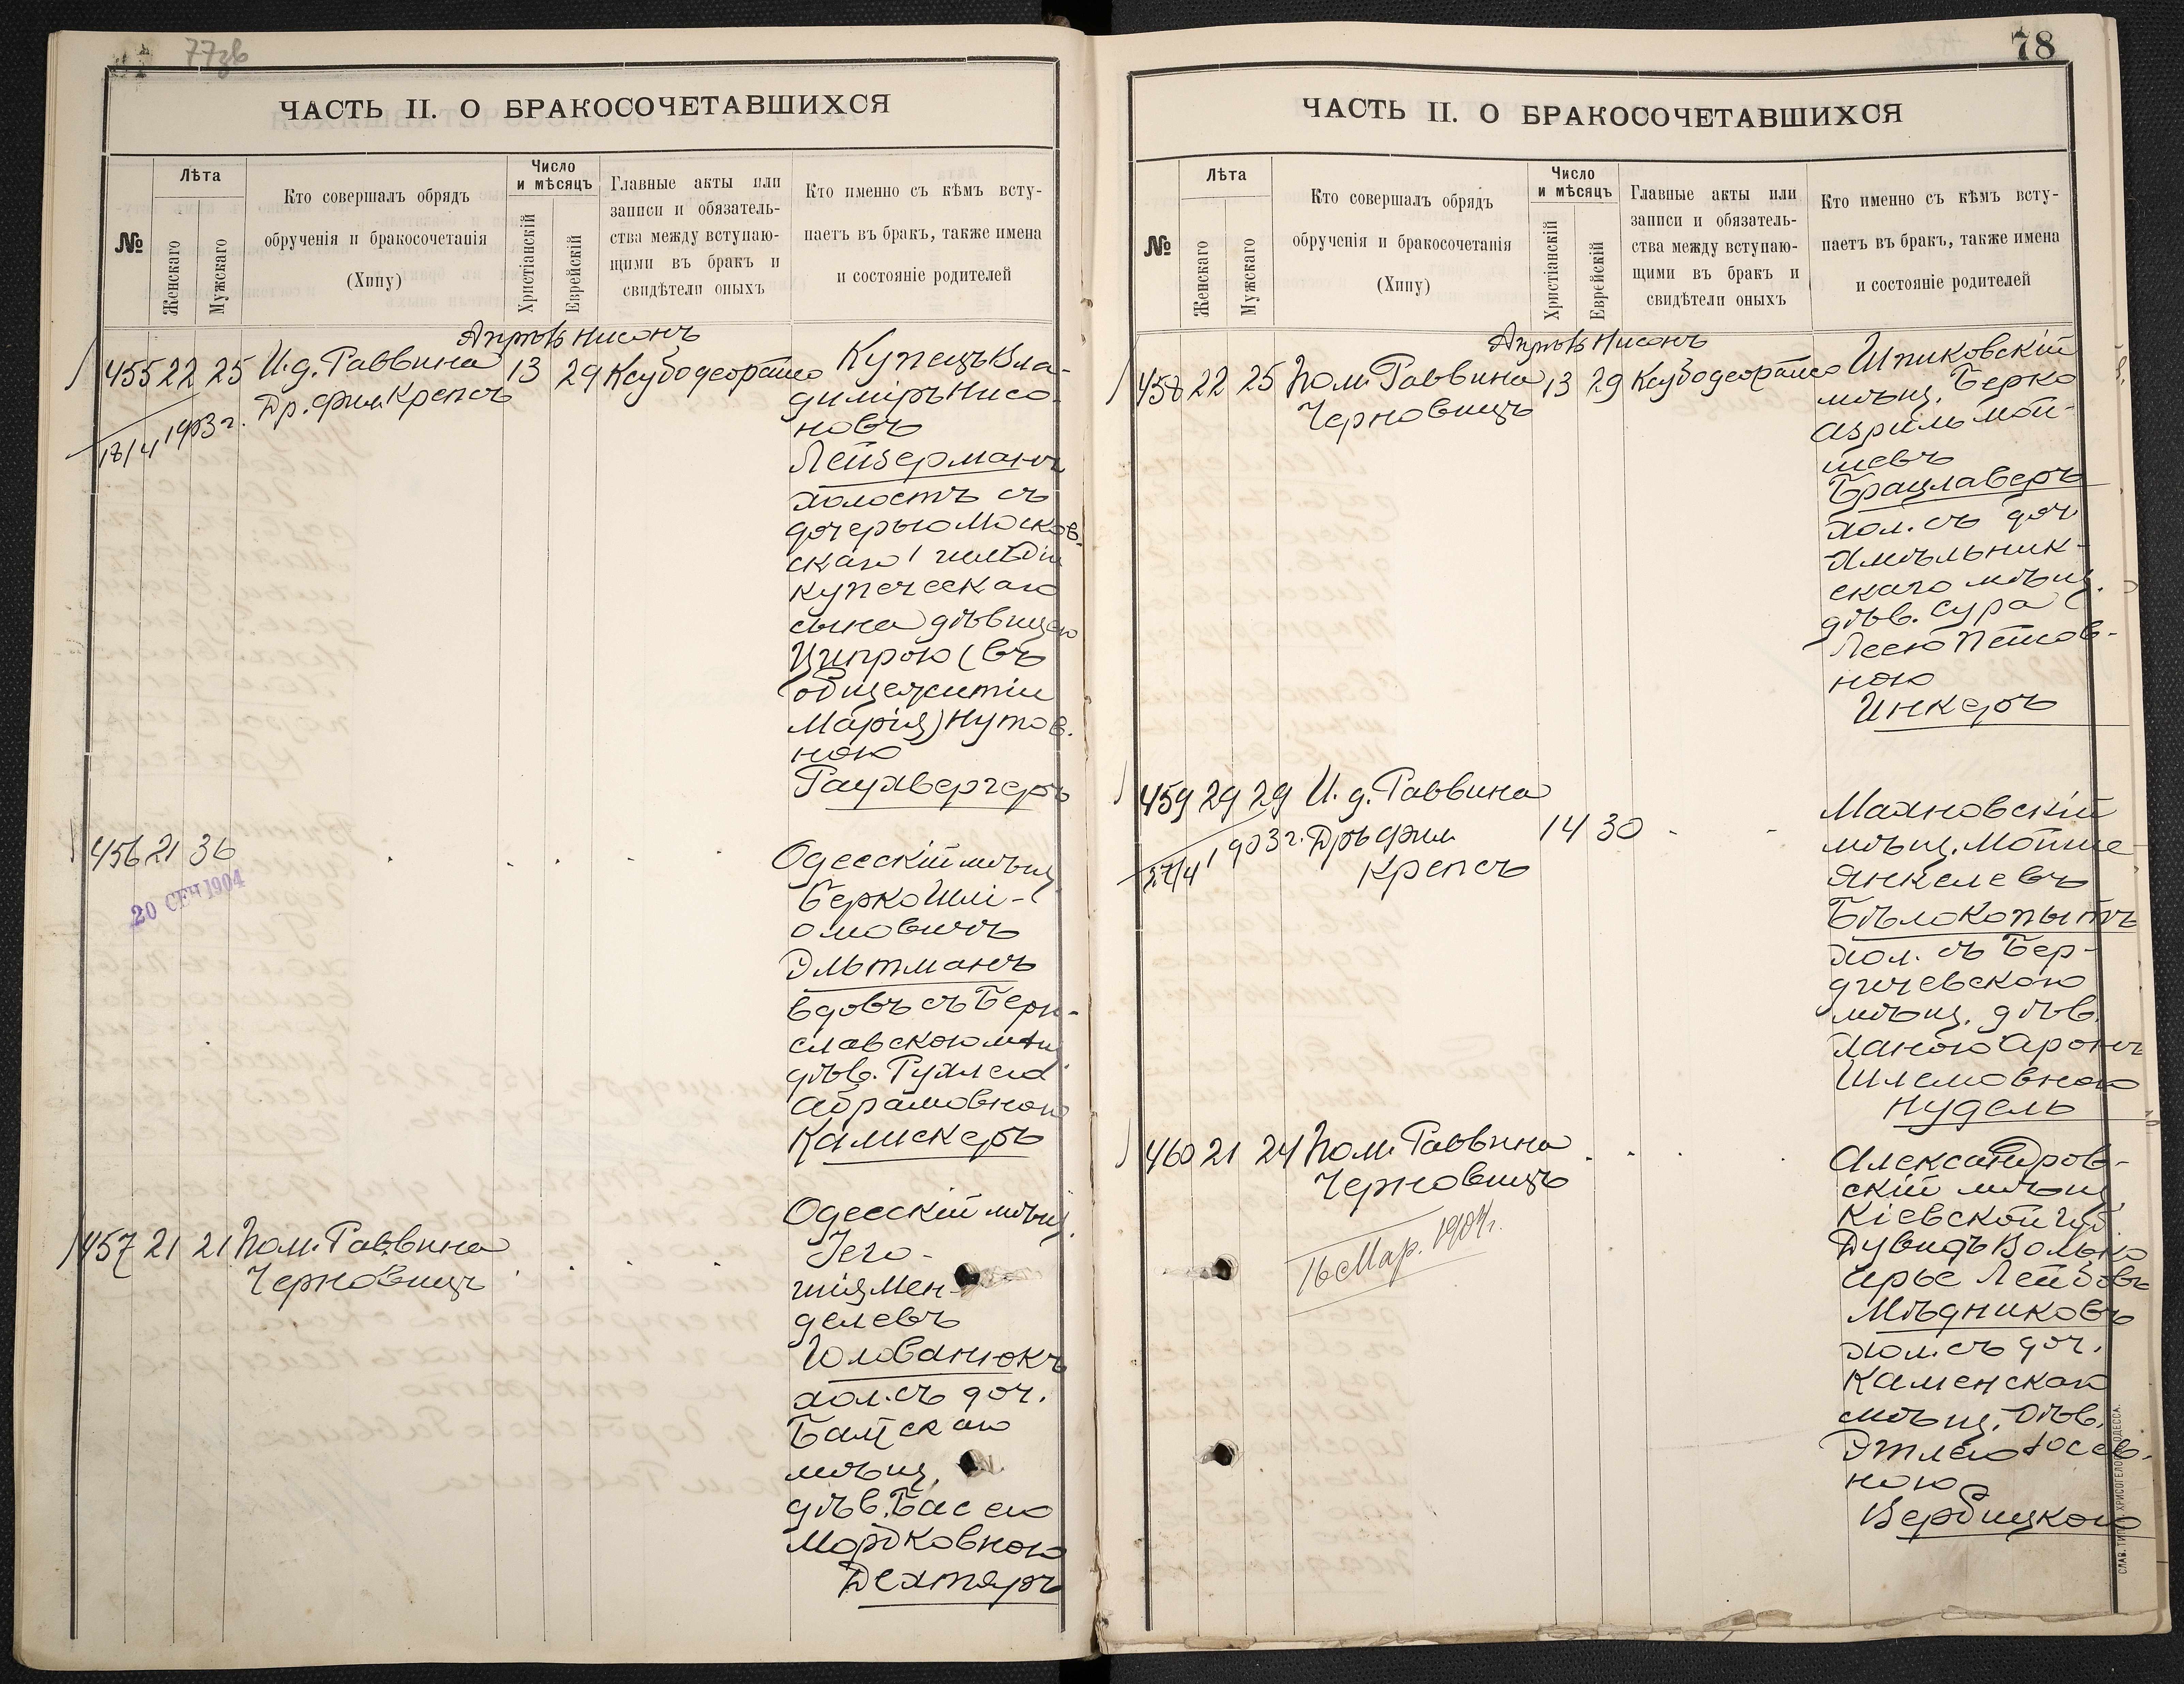 77зв
ЧАСТЬ II. О БРАКОСОЧЕТАВШИХСЯ
№
Лѣта
Женскаго
Мужскаго
Кто совершалъ обрядъ
обрученія и бракосочетанія
(Хипу)
Число
и мѣсяцъ
Христіанскій
Еврейскій
Главные акты или
записи и обязатель-
ства между вступаю-
щими въ бракъ и
свидѣтели оныхъ
Кто именно съ кѣмъ всту-
паетъ въ бракъ, также имена
и состояніе родителей
Апрѣль Нисонъ
455 22 25 И.д. Раввина 13 29 Ксубодеорайсо
Др. фил. Крепсъ
18/4 1903 г.
Купецъ Вла-
димiръ Нисо-
новъ
Лейзерманъ
холостъ съ
дочерью Москов-
скаго 1 гильдіи
купеческаго
сына дѣвицею
Ципрою (въ
общежитіи
Марія) Нутов-
ною
Раухвергеръ
456 21 36
20 СЕЧ 1904
Одесскій мѣщ.
Берко Шлі-
омовичъ
Эльтманъ
вдовъ съ Бери-
славскою мѣщ.
дѣв. Рухлею
Абрамовною
Калискеръ
457 21 21 Пом. Раввина
Черновицъ
Одесскій мѣщ.
Іего-
шія Мен-
делевъ
Голованюкъ
хол. съ доч.
Балтскаго
мѣщ.
дѣв. Басею
Мордковною
Дехтяръ
78
ЧАСТЬ II. О БРАКОСОЧЕТАВШИХСЯ
№
Лѣта
Женскаго
Мужскаго
Кто совершалъ обрядъ
обрученія и бракосочетанія
(Хипу)
Число
и мѣсяцъ
Христіанскій
Еврейскій
Главные акты или
записи и обязатель-
ства между вступаю-
щими въ бракъ и
свидѣтели оныхъ
Кто именно съ кѣмъ всту-
паетъ въ бракъ, также имена
и состояніе родителей
Апрѣль Нисонъ
458 22 25 Пом. Раввина 13 29 Ксубодеорайсо
Черновицъ
Шпиковскій
мѣщ. Берко
Азриль Мой-
шевъ
Брацлаверъ
хол. съ доч.
Хмѣльник-
скаго мѣщ.
дѣв. Сура
Леею Пейсов-
ною
Инкеръ
459 29 29 И. д. Раввина
Дръ фил. 14 30
Крепсъ
27/4 1903 г.
Махновскій
мѣщ. Мойше
Янкелевъ
Бѣлокопытъ
хол. съ Бер-
дичевскою
мѣщ. дѣв.
Ханою Аронъ
Шлемовною
Нудель
460 21 24 Пом. Раввина
Черновицъ
16 Мар. 1904 г.
Александров-
скій мѣщ.
Кіевской губ.
Дувидъ Волько
Ирье Лейбовъ
Мѣдниковъ
хол. съ доч.
Каменскаго
мѣщ. дѣв.
Этлею Іосев-
ною
Вербицкою
СЛАВ. ТИП. Н. ХРИСОГЕЛОСЪ ОДЕССА.